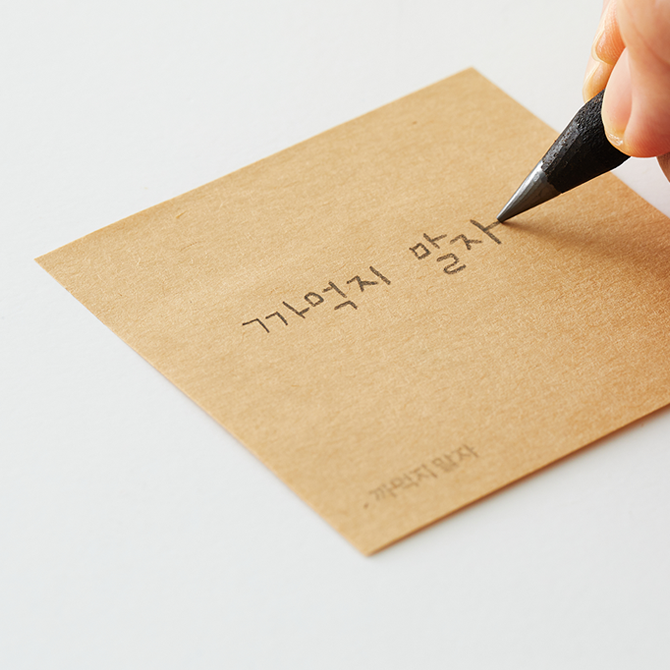 까먹지 말자
까먹지 말자